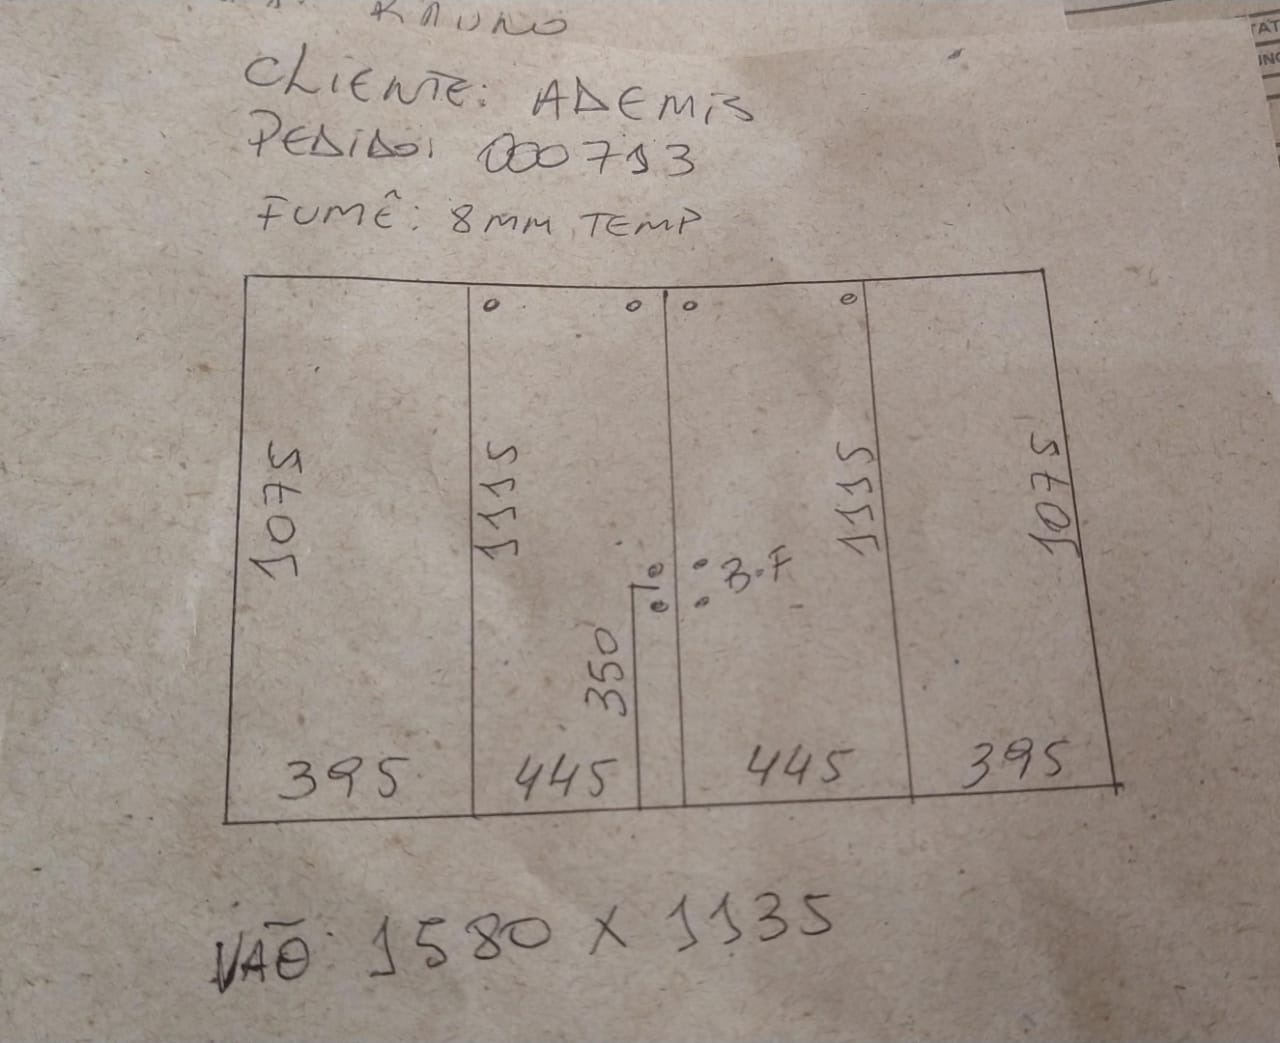 CLIENTE: ADEMIS
PEDIDO: 000713
FUMÊ: 8MM TEMP
1075
1115
1115
1075
B.F
350
395
445
445
395
VÃO: 1580 X 1135